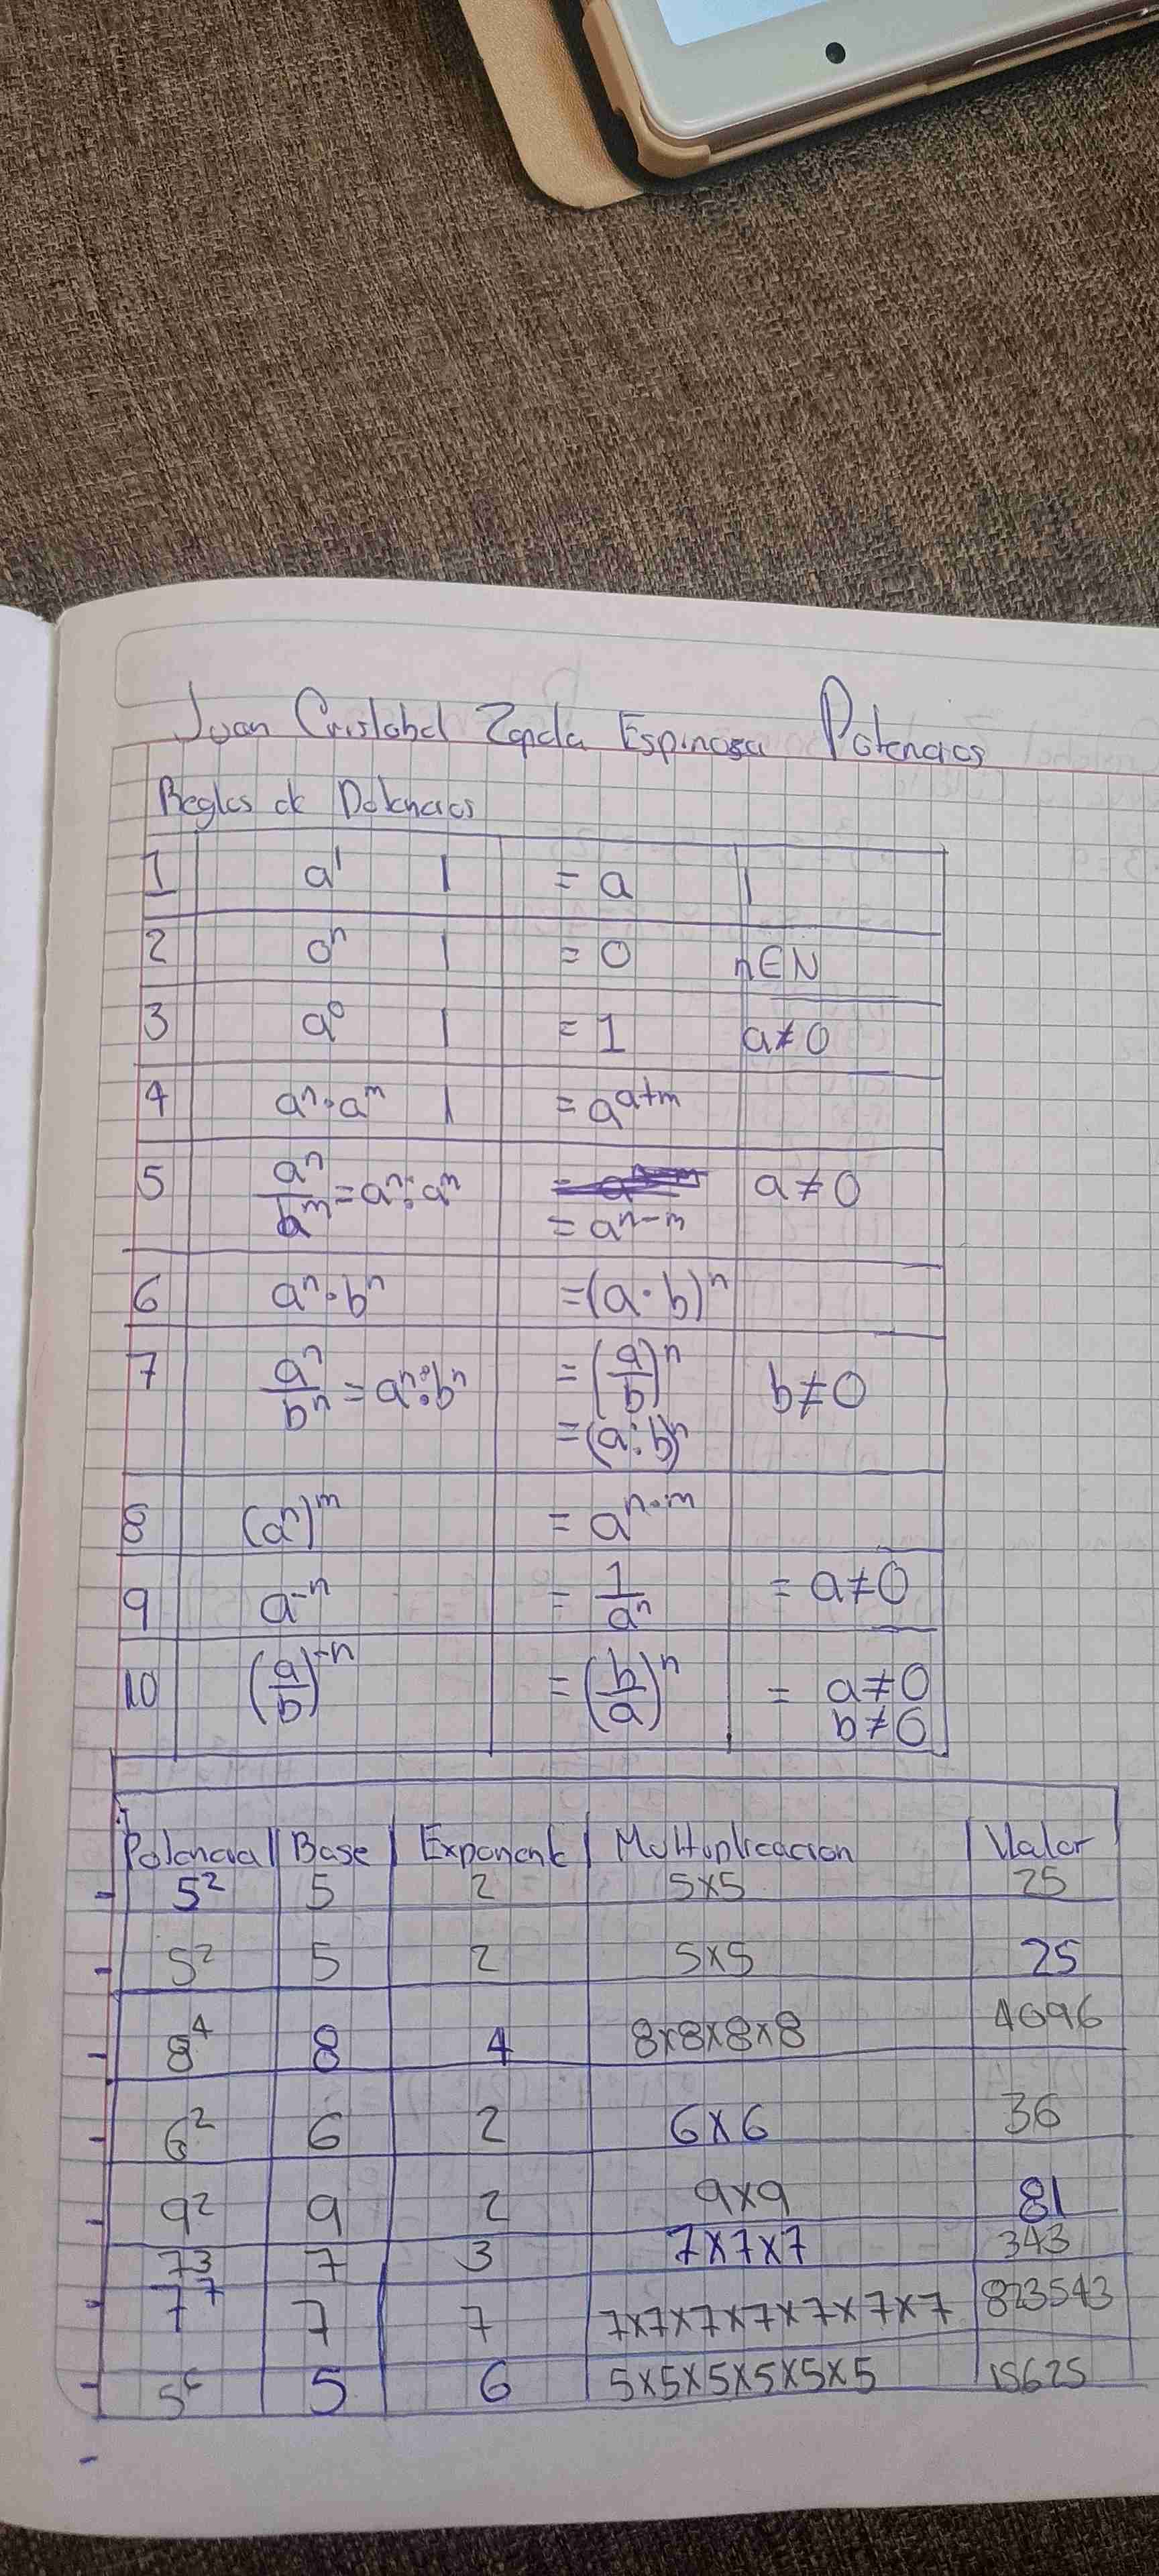 Juan Cristobal Zapata Espinosa Potencias
Reglas de Potencias
1 a¹ | = a |
2 0ⁿ | = 0 n∈N
3 a⁰ | = 1 a≠0
4 aⁿ·aᵐ | = a^(a+m)
5 aⁿ/aᵐ = aⁿ:aᵐ = aⁿ⁻ᵐ a≠0
6 aⁿ·bⁿ =(a·b)ⁿ
7 aⁿ/bⁿ = aⁿ:bⁿ = (a/b)ⁿ b≠0
=(a:b)ⁿ
8 (aⁿ)ᵐ = a^(n·m)
9 a⁻ⁿ = 1/aⁿ = a≠0
10 (a/b)⁻ⁿ = (b/a)ⁿ = a≠0
b≠0
Potencia | Base | Exponente | Multiplicacion | Valor
5² 5 2 5x5 25
5² 5 2 5x5 25
8⁴ 8 4 8x8x8x8 4096
6² 6 2 6x6 36
9² 9 2 9x9 81
7³ 7 3 7x7x7 343
7⁷ 7 7 7x7x7x7x7x7x7 823543
5⁶ 5 6 5x5x5x5x5x5 15625